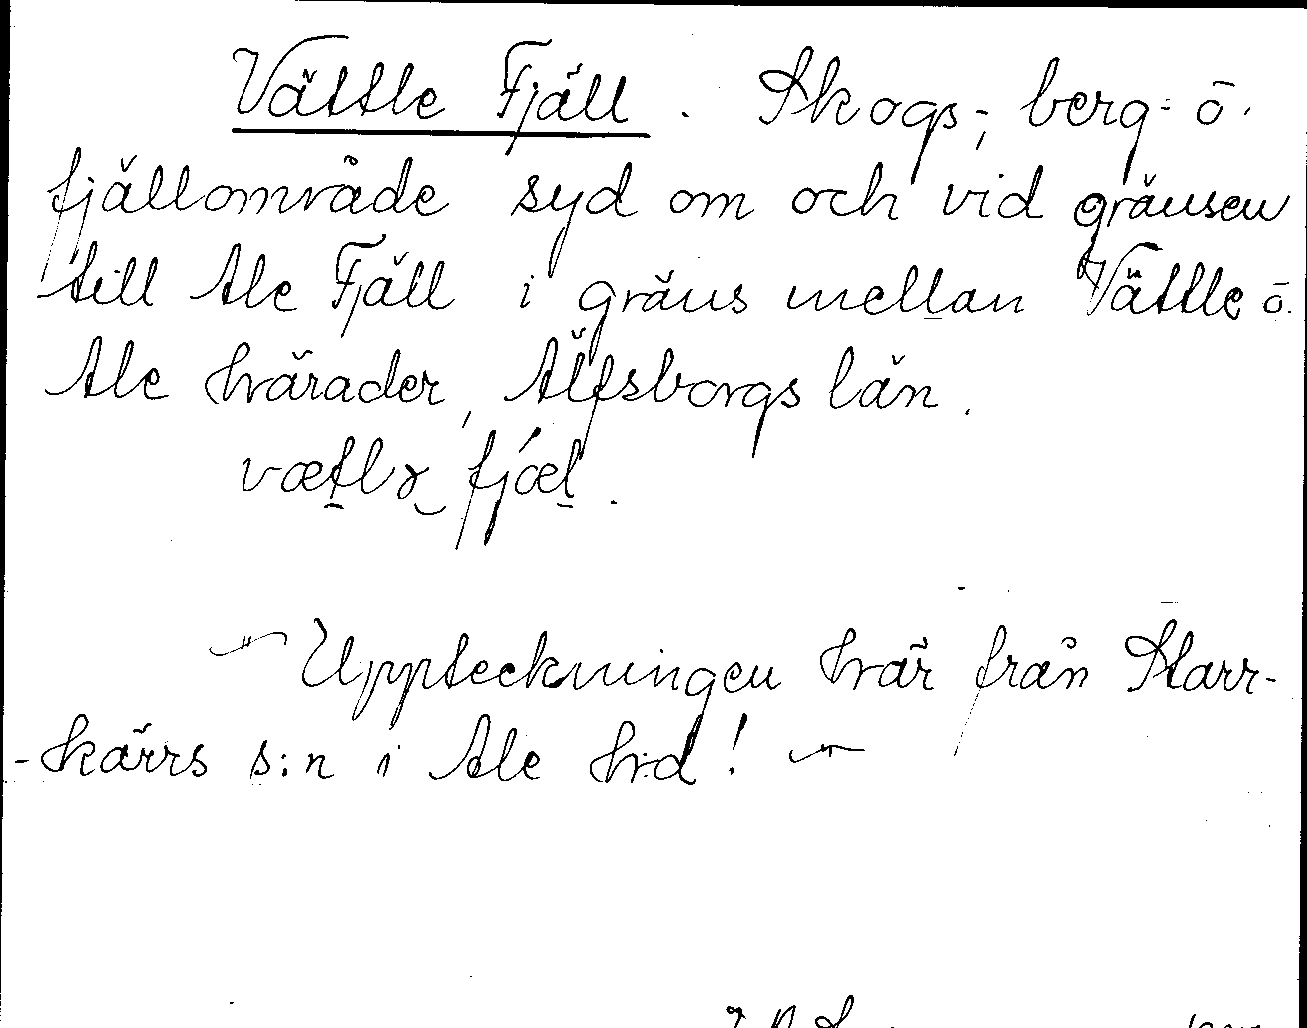 Vättle Fjäll. Skogs-, berg- o.
fjällområde syd om och vid gränsen
till Ale Fjäll i gräns mellan Vättle o.
Ale härader, Älfsborgs län.
Uppteckningen här från Starr-
-kärrs s:n i Ale hrd!